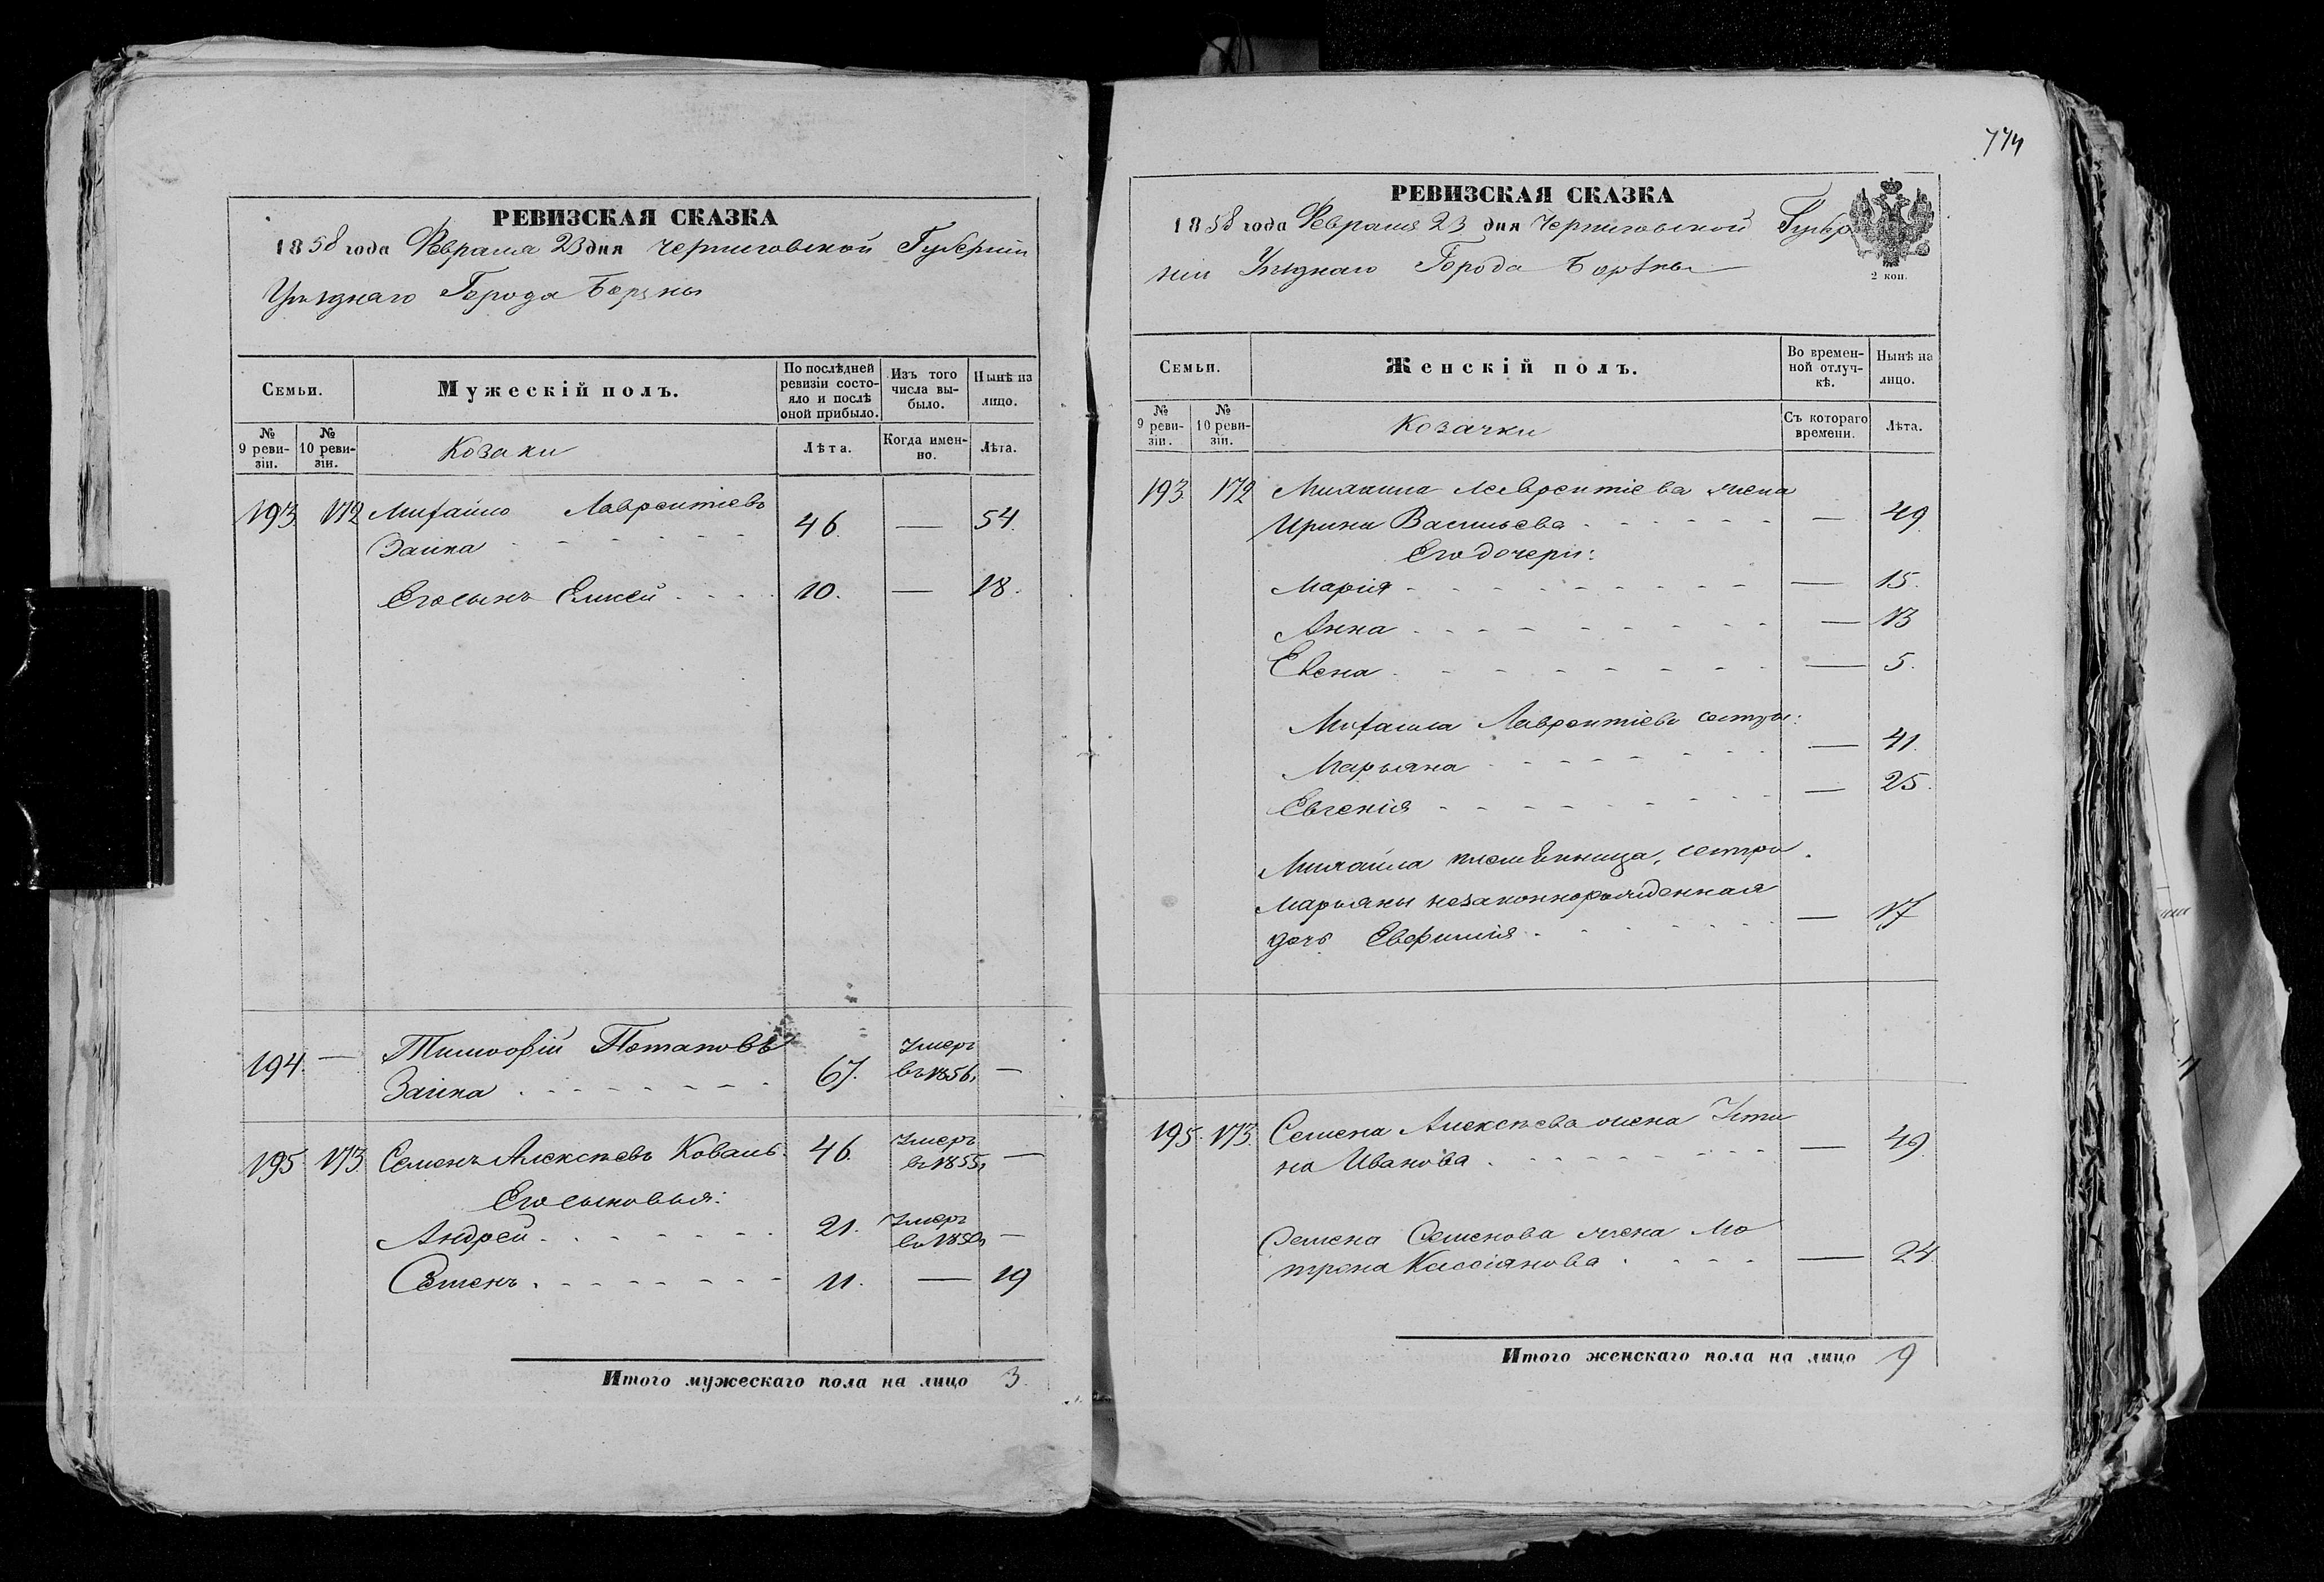 РЕВИЗСКАЯ СКАЗКА
1858 года Февраля 23 дня Черниговской Губерніи
Уѣзднаго Города Борзны
Семьи.
Мужескій полъ.
По послѣдней ревизіи состояло и послѣ оной прибыло.
Изъ того числа выбыло.
Нынѣ на лицо.
№ 9 ревизіи.
№ 10 ревизіи.
Козаки
Лѣта.
Когда именно.
Лѣта.
193 172 Михайло Лаврентіевъ
Заика 46 — 54.
Его сынъ Елисей 10. — 18.
194. — Тимофій Потаповъ
Заика 67. Умеръ въ 1856. —
195 173 Семенъ Алексѣевъ Коваль 46. Умеръ въ 1855 —
Его сыновья:
Андрей 21. Умеръ въ 1850 —
Семенъ 11. — 19
Итого мужескаго пола на лицо 3.
774
РЕВИЗСКАЯ СКАЗКА
1858 года Февраля 23 дня Черниговской Губер
ніи Уѣзднаго Города Борзны
2 коп.
Семьи.
Женскій полъ.
Во временной отлучкѣ.
Нынѣ на лицо.
№ 9 ревизіи.
№ 10 ревизіи.
Козачки
Съ котораго времени.
Лѣта.
193 172 Михаила Лаврентіева жена
Ирина Васильева — 49.
Его дочери:
Марія — 15.
Анна — 13
Елена — 5.
Михаила Лаврентіева сестры:
Марьяна — 41.
Евгенія — 25.
Михайла племѣнница, сестры
Марьяны незаконнорожденная
дочь Евфимія — 17
195. 173. Семена Алексѣева жена Усти
на Иванова — 49
Семена Семенова жена Мо
трона Кассіянова — 24.
Итого женскаго пола на лицо 9